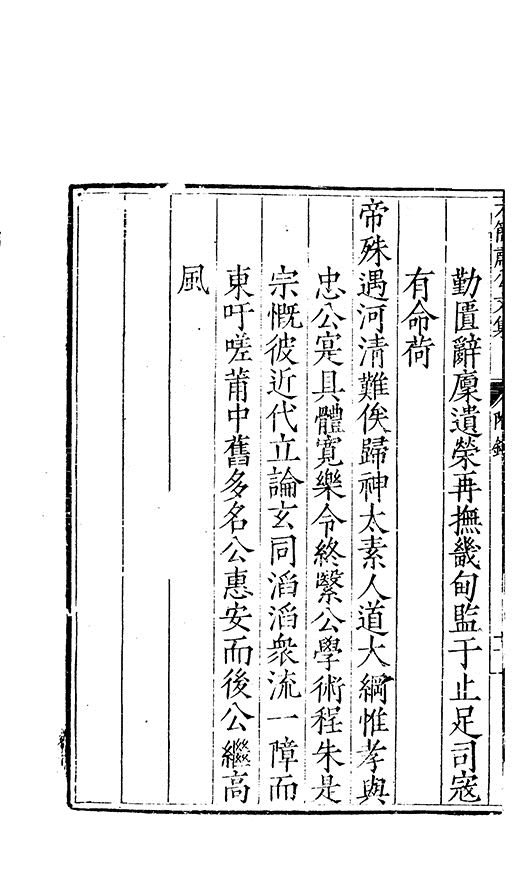 勤匱辭廩遺榮再撫畿甸監于止足司寇
有命荷
帝殊遇河清難俟歸神太素人道大綱惟孝與
忠公寔具體寬樂令終繄公學術程朱是
宗慨彼近代立論玄同滔滔衆流一障而
東吁嗟莆中舊多名公惠安而後公繼高
風